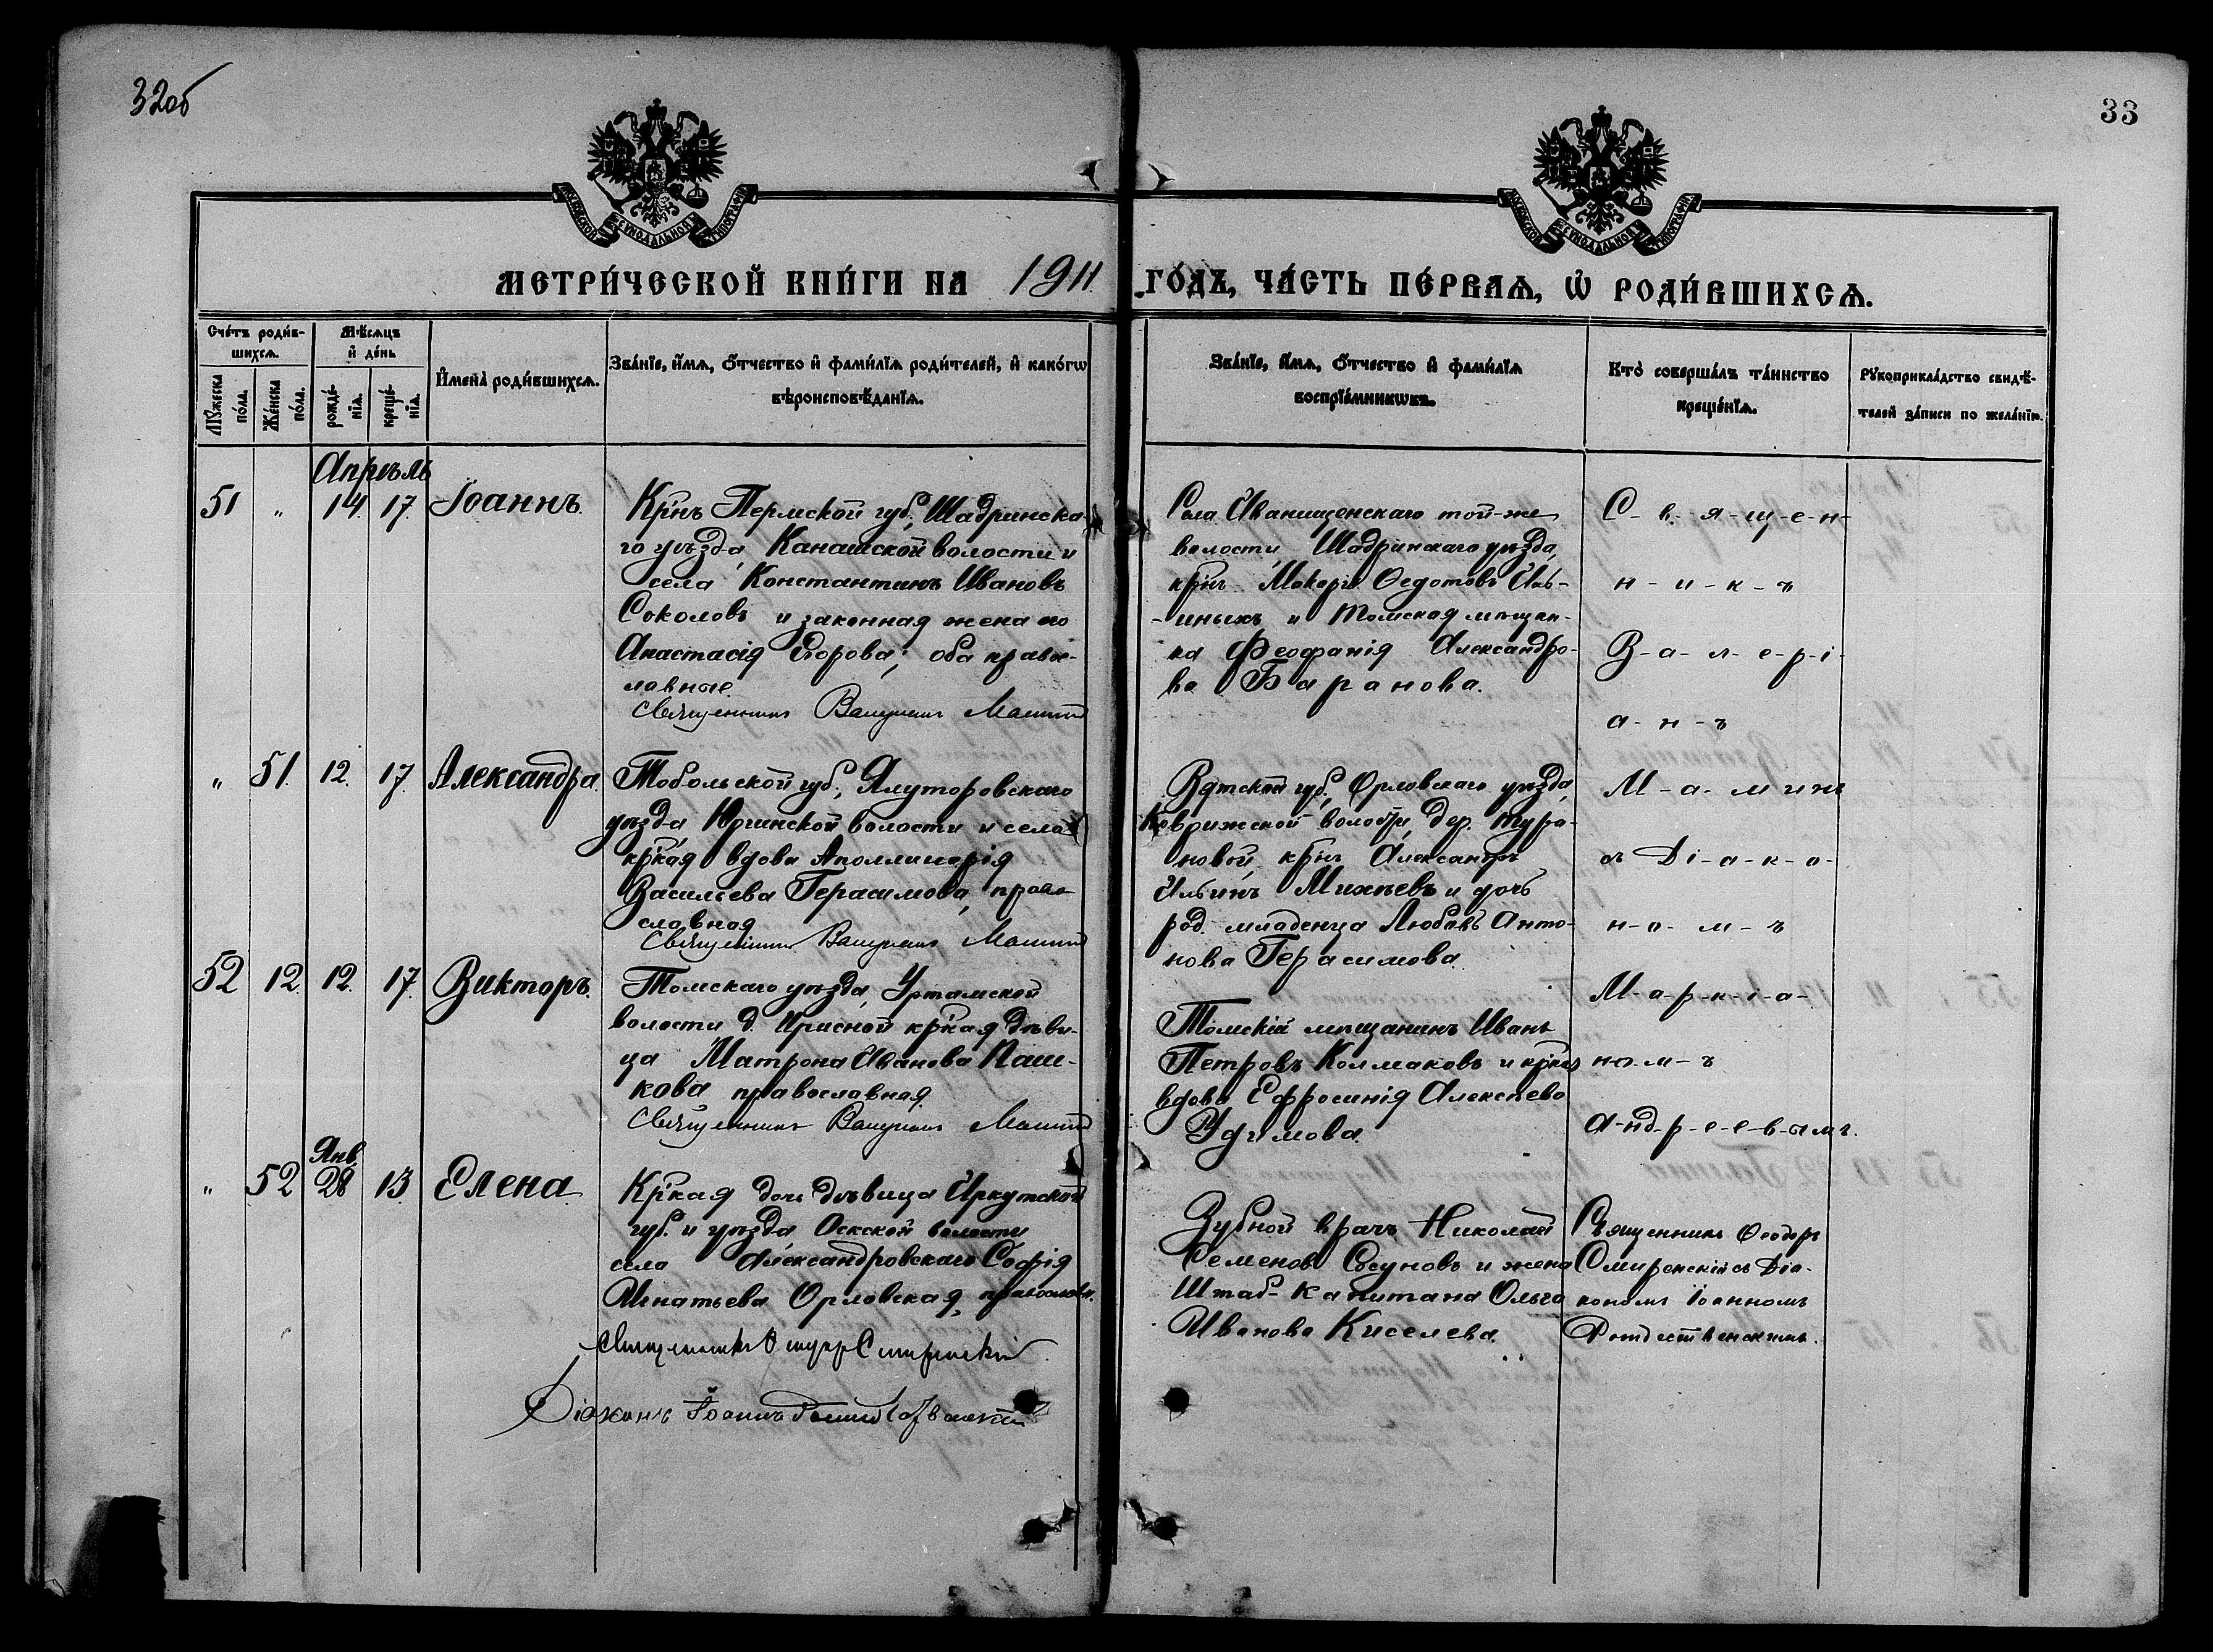 32об
33
МОСКОВСКОЙ СѴНОДАЛЬНОЙ ТИПОГРАФІИ
МОСКОВСКОЙ СѴНОДАЛЬНОЙ ТИПОГРАФІИ
МЕТРИ́ЧЕСКОЙ КНИ́ГИ НА 1911 ГО́ДЪ, ЧА́СТЬ ПЕ́РВАѦ, Ѡ҆ РОДИ́ВШИХСѦ.
Сче́тъ роди́в-
шихсѧ.
Мꙋ́жеска по́ла.
Же́нска по́ла.
Мѣ́сѧцъ
и҆ де́нь
рожде́-
нїѧ.
креще́-
нїѧ.
И҆мена̀ роди́вшихсѧ.
Зва́нїе, и҆́мѧ, ѻ҆́тчество и҆ фами́лїѧ роди́телей, и҆ како́гѡ
вѣроисповѣ́данїѧ.
Зва́нїе, и҆́мѧ, ѻ҆́тчество и҆ фами́лїѧ
воспрїе́мникѡвъ.
Кто̀ соверша́лъ та́инство
креще́нїѧ.
Рꙋкоприкла́дство свидѣ́-
телей за́писи по жела́нїю.
Апрѣль
51 " 14. 17. Іоаннъ.
Кр'нъ Пермской губ., Шадринска-
го уѣзда, Канашской волости и
села Константинъ Ивановъ
Соколовъ и законная жена его
Анастасія Егорова; оба право-
лавные.
Священникъ Валеріанъ Маминъ
Села Иванищенскаго той-же
волости, Шадринскаго уѣзда,
кр'нъ Макарій Ѳедотовъ Иль-
-иныхъ и томская мѣщан-
ка Феофанія Александро-
ва Баранова.
С-в-я-щ-е-н-
н-и-к-ъ
В-а-л-е-р-і-
а-н-ъ
" 51. 12. 17. Александра.
Тобольской губ., Ялуторовскаго
уѣзда, Юргинской волости и села
кр'кая вдова Аполлинарія
Васильева Герасимова, право-
славная
Священникъ Валеріанъ Маминъ
Вятской губ., Орловскаго уѣзда,
Коврижской волости, дер. Тура-
новой, кр'нъ Александръ
Ильинъ Михѣевъ и дочь
род. младенца Любовь Анто-
нова Герасимова.
М-а-м-инъ
съ Ді-а-к-о-
н-о-м-ъ
М-а-р-к-і-а-
но-м-ъ
А-нд-р-е-е-в-ымъ.
52 12. 12. 17. Викторъ.
Томскаго уѣзда, Уртамской
волости д. Ирисной кр'кая дѣви-
ца Матрона Иванова Паш-
кова православная.
Священникъ Валеріанъ Маминъ
Томскій мѣщанинъ Иванъ
Петровъ Колмаковъ и кр'кая
вдова Ефросинія Алексѣева
Уфимова.
Янв.
" 52 28 13 Елена
Кр'кая дочь дѣвица Иркутской
губ. и уѣзда Оекской волости
села Александровскаго Софія
Игнатьева Орловская, православн.
Священникъ Ѳеодоръ Смиренскій
Діаконъ Іоаннъ Рождественскій
Зубной врачъ Николай
Семеновъ Сосуновъ и жена
Штаб-Капитана Ольга
Иванова Киселева.
Священникъ Ѳеодоръ
Смиренскій съ Діа-
кономъ Іоанномъ
Рождественскимъ.